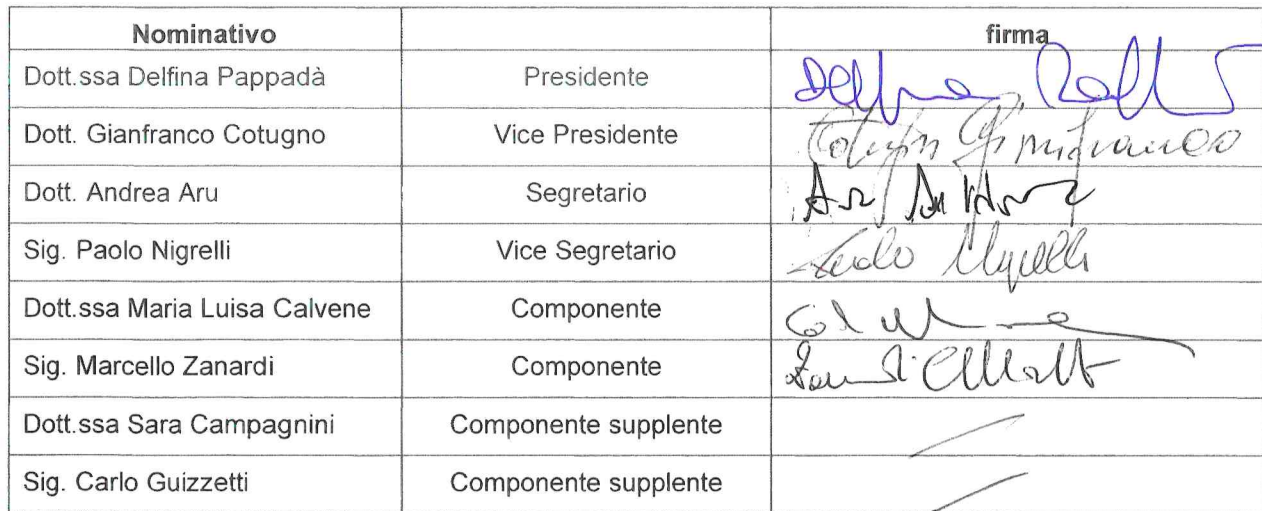 Nominativo firma
Dott.ssa Delfina Pappadà Presidente
Dott. Gianfranco Cotugno Vice Presidente Gianfranco
Dott. Andrea Aru Segretario
Sig. Paolo Nigrelli Vice Segretario Paolo Nigrelli
Dott.ssa Maria Luisa Calvene Componente
Sig. Marcello Zanardi Componente
Dott.ssa Sara Campagnini Componente supplente
Sig. Carlo Guizzetti Componente supplente